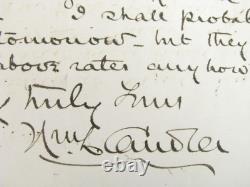 I shall probab
tomorrow - but they
above rates anyhow
truly Yours
Wm L Candler